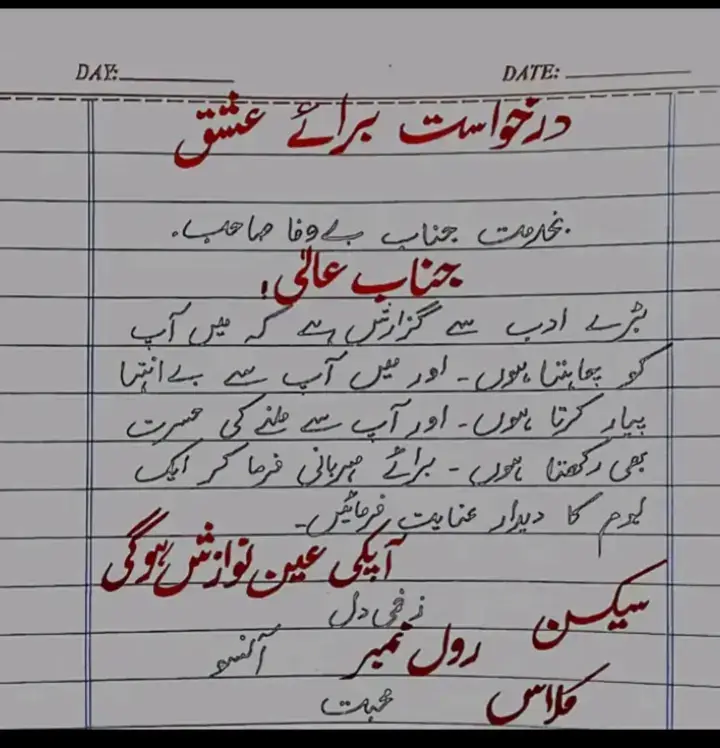 DAY: DATE:
درخواست برائے عشق
بخدمت جناب بےوفا صاحب۔
جناب عالی!
بڑے ادب سے گزارش ہے کہ میں آپ
کو چاہتا ہوں۔ اور میں آپ سے بےانتہا
پیار کرتا ہوں۔ اور آپ سے ملنے کی حسرت
بھی رکھتا ہوں۔ برائے مہربانی فرما کر ایک
یوم کا دیدار عنایت فرمائیں۔
آپکی عین نوازش ہوگی
سیکسن زخمی دل
رول نمبر آنسو
کلاس محبت